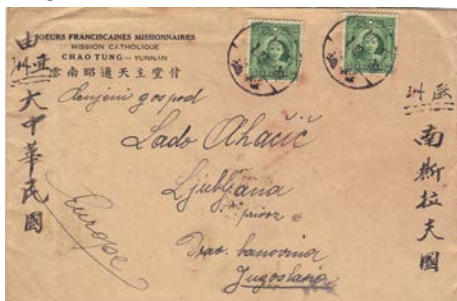 SOEURS FRANCISCAINES MISSIONNAIRES
MISSION CATHOLIQUE
CHAO TUNG — YUNNAN
付堂主天通昭南雲
由亞洲大中華民國
Cenjeni gospod
Lado Ahačič
Ljubljana
Drav. banovina
Jugoslavia
Europe
歐洲
南斯拉夫國